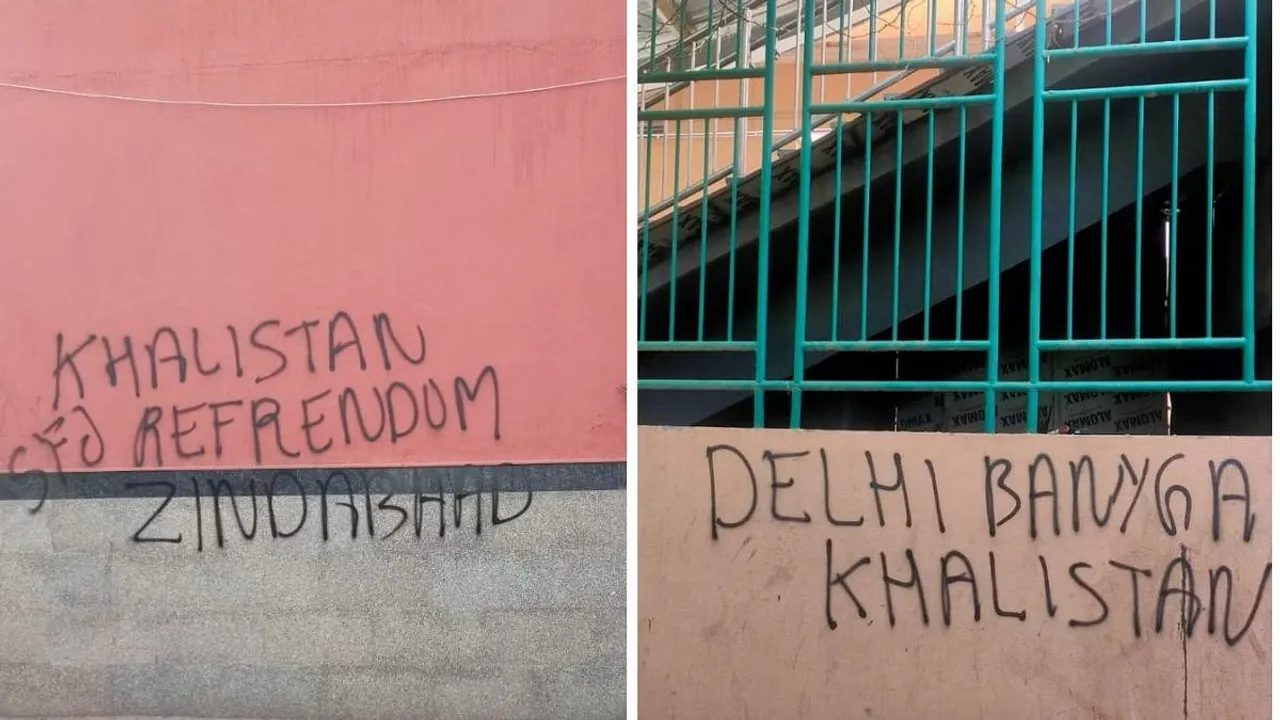 KHALISTAN
SFJ REFRENDUM
ZINDABAAD
DELHI BANYGA
KHALISTAN